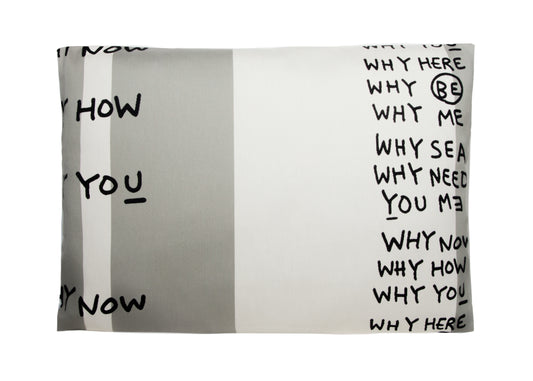 NOW
HOW
YOU
WHY NOW
WHY YOU
WHY HERE
WHY BE
WHY ME
WHY SEA
WHY NEED
YOU ME
WHY NOW
WHY HOW
WHY YOU
WHY HERE